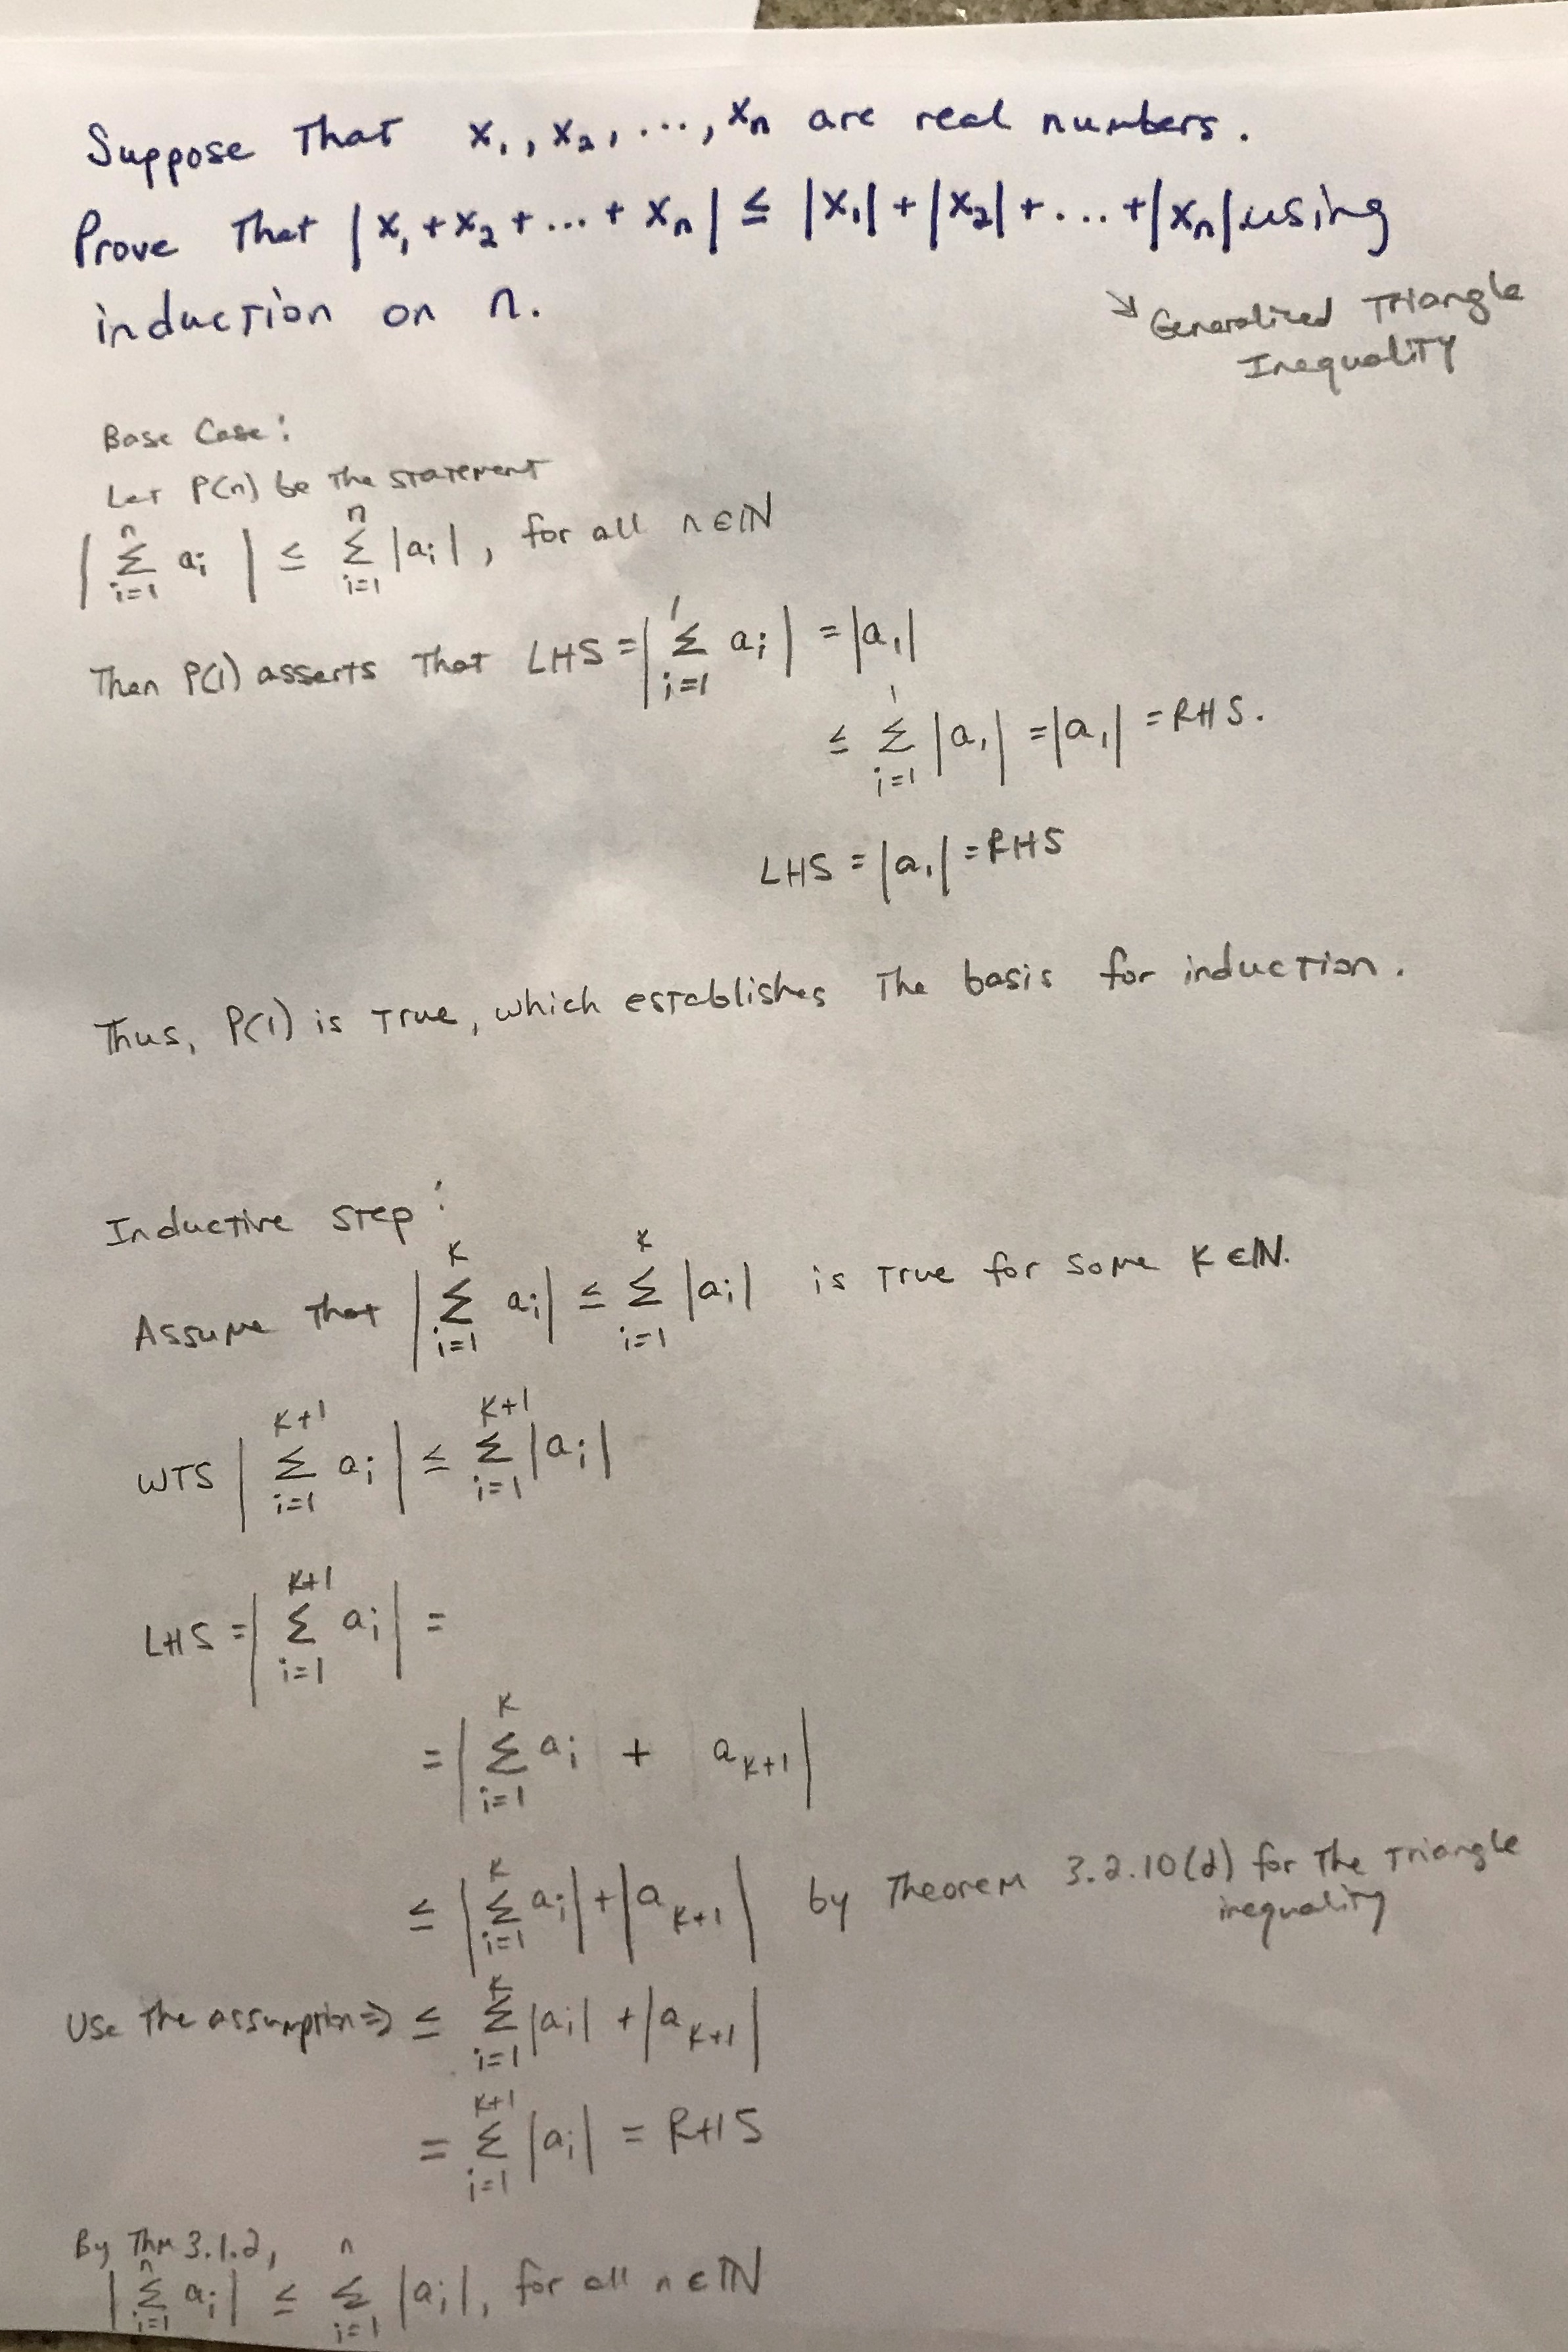 Suppose that x₁, x₂, ..., xₙ are real numbers.
Prove that |x₁ + x₂ + ... + xₙ| ≤ |x₁| + |x₂| + ... + |xₙ| using
induction on n.
↘ Generalized Triangle
Inequality
Base Case:
Let P(n) be the statement
|∑_{i=1}^{n} aᵢ| ≤ ∑_{i=1}^{n} |aᵢ|, for all n ∈ ℕ
Then P(1) asserts that LHS = |∑_{i=1}^{1} aᵢ| = |a₁|
≤ ∑_{i=1}^{1} |a₁| = |a₁| = RHS.
LHS = |a₁| = RHS
Thus, P(1) is true, which establishes the basis for induction.
Inductive step:
Assume that |∑_{i=1}^{K} aᵢ| ≤ ∑_{i=1}^{K} |aᵢ| is true for some K ∈ ℕ.
WTS |∑_{i=1}^{K+1} aᵢ| ≤ ∑_{i=1}^{K+1} |aᵢ|
LHS = |∑_{i=1}^{K+1} aᵢ| =
= |∑_{i=1}^{K} aᵢ + a_{K+1}|
≤ |∑_{i=1}^{K} aᵢ| + |a_{K+1}| by Theorem 3.2.10(d) for the triangle
inequality
Use the assumption ⇒ ≤ ∑_{i=1}^{K} |aᵢ| + |a_{K+1}|
= ∑_{i=1}^{K+1} |aᵢ| = RHS
By Thm 3.1.2,
|∑_{i=1}^{n} aᵢ| ≤ ∑_{i=1}^{n} |aᵢ|, for all n ∈ ℕ